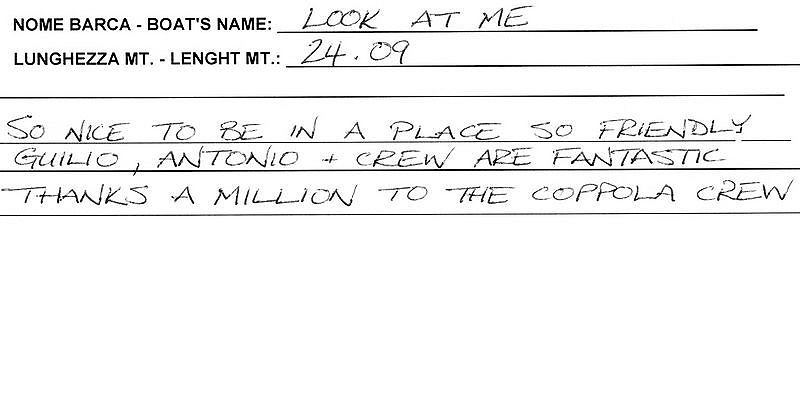 NOME BARCA - BOAT'S NAME: LOOK AT ME
LUNGHEZZA MT. - LENGHT MT.: 24.09
SO NICE TO BE IN A PLACE SO FRIENDLY
GUILIO, ANTONIO + CREW ARE FANTASTIC
THANKS A MILLION TO THE COPPOLA CREW